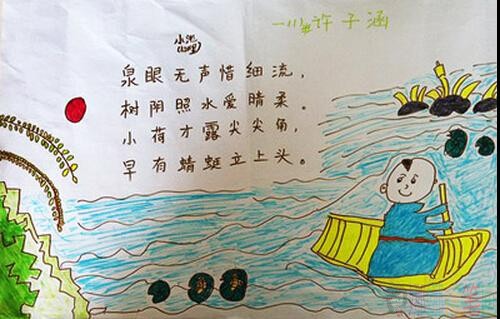 一川班许子涵
小池
泉眼无声惜细流，
树阴照水爱晴柔。
小荷才露尖尖角，
早有蜻蜓立上头。